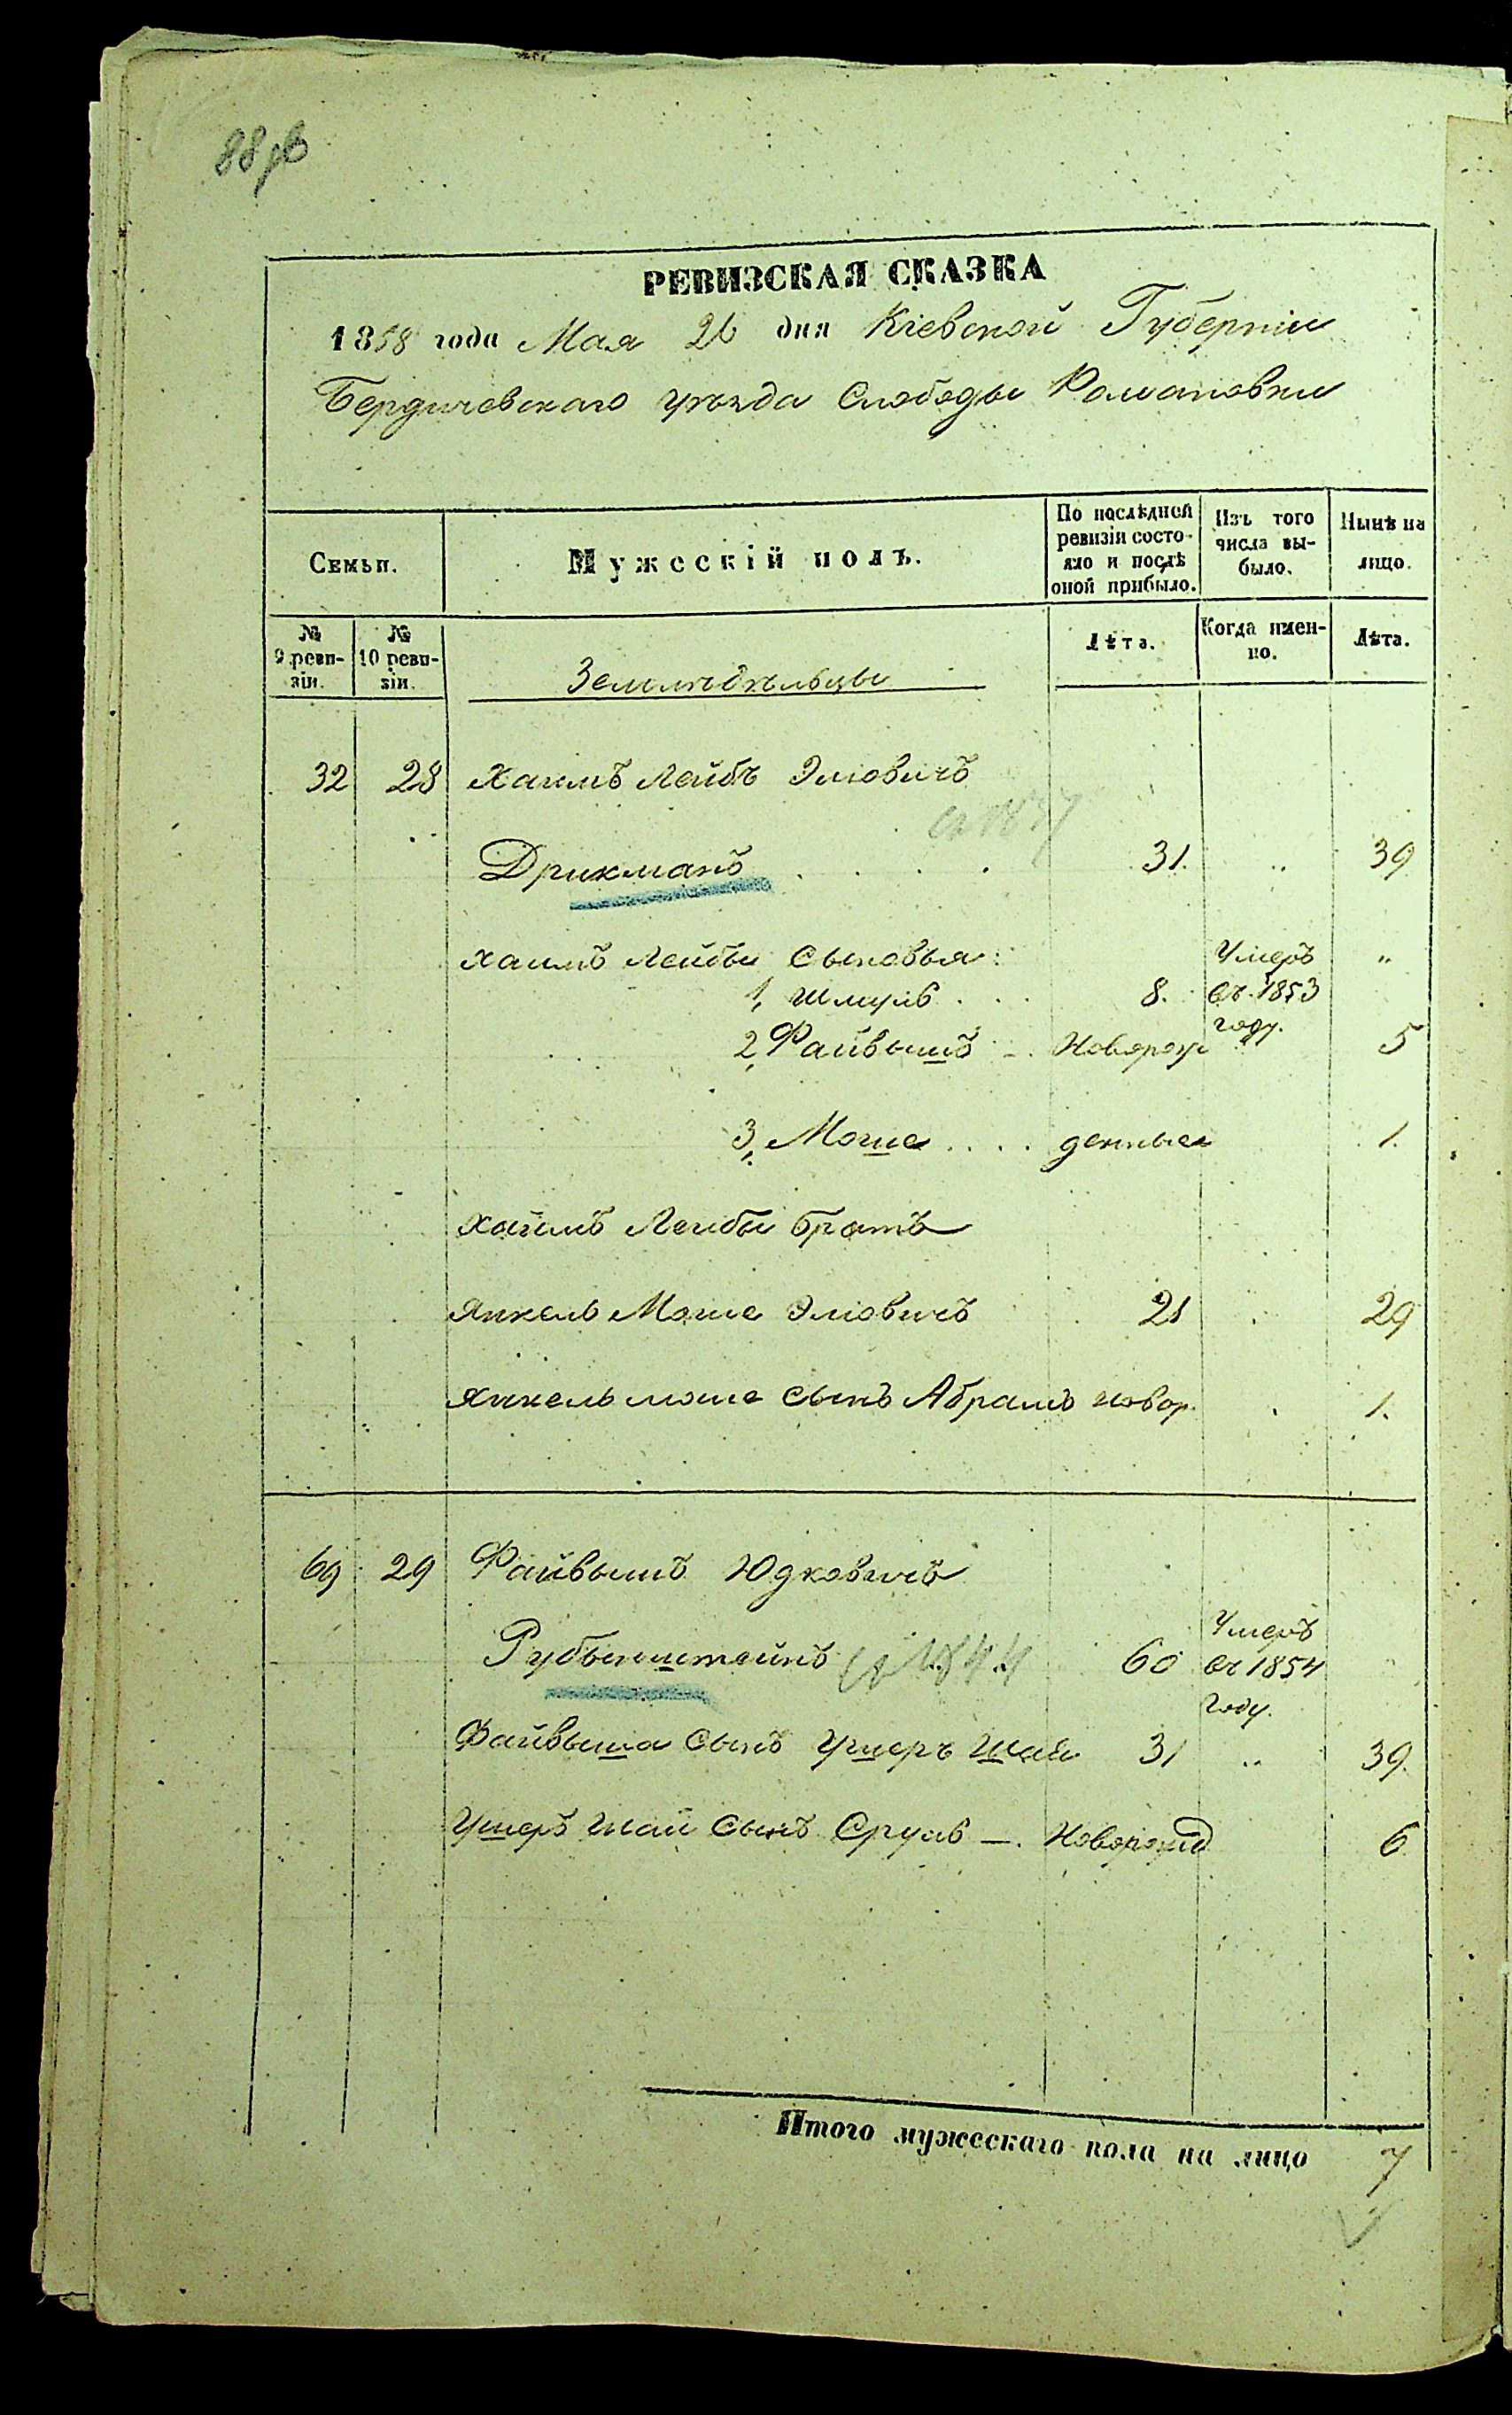 88
РЕВИЗСКАЯ СКАЗКА
1858 года Мая 26 дня Кіевской Губерніи
Бердичевскаго уѣзда Слободы Романовки
Семьи.
Мужескій полъ.
По послѣдней ревизіи состояло и послѣ оной прибыло.
Изъ того числа выбыло.
Нынѣ на лицо.
№ 9 ревизіи.
№ 10 ревизіи.
Земледѣльцы
Лѣта.
Когда именно.
Лѣта.
32 28 Хаимъ Лейбъ Эліовичъ
Дрикманъ . . . . 31. „ 39
Хаимъ Лейбы Сыновья: Умеръ „
1, Шмуль . . . 8. въ 1853
году.
2, Файвышъ — . Новорож 5
3, Моше . . . . денные 1.
Хаимъ Лейбы братъ
Янкель Моше Эліовичъ 21 . 29
Янкель моше сынъ Абрамъ новор. . 1.
69 29 Файвышъ Юдковичъ
Рубынштейнъ 60 Умеръ въ 1854 году.
Файвыша Сынъ Ушеръ Шая 31 „ 39.
Ушеръ Шаи Сынъ Сруль — . Новорожд 6
Итого мужескаго пола на лицо 7